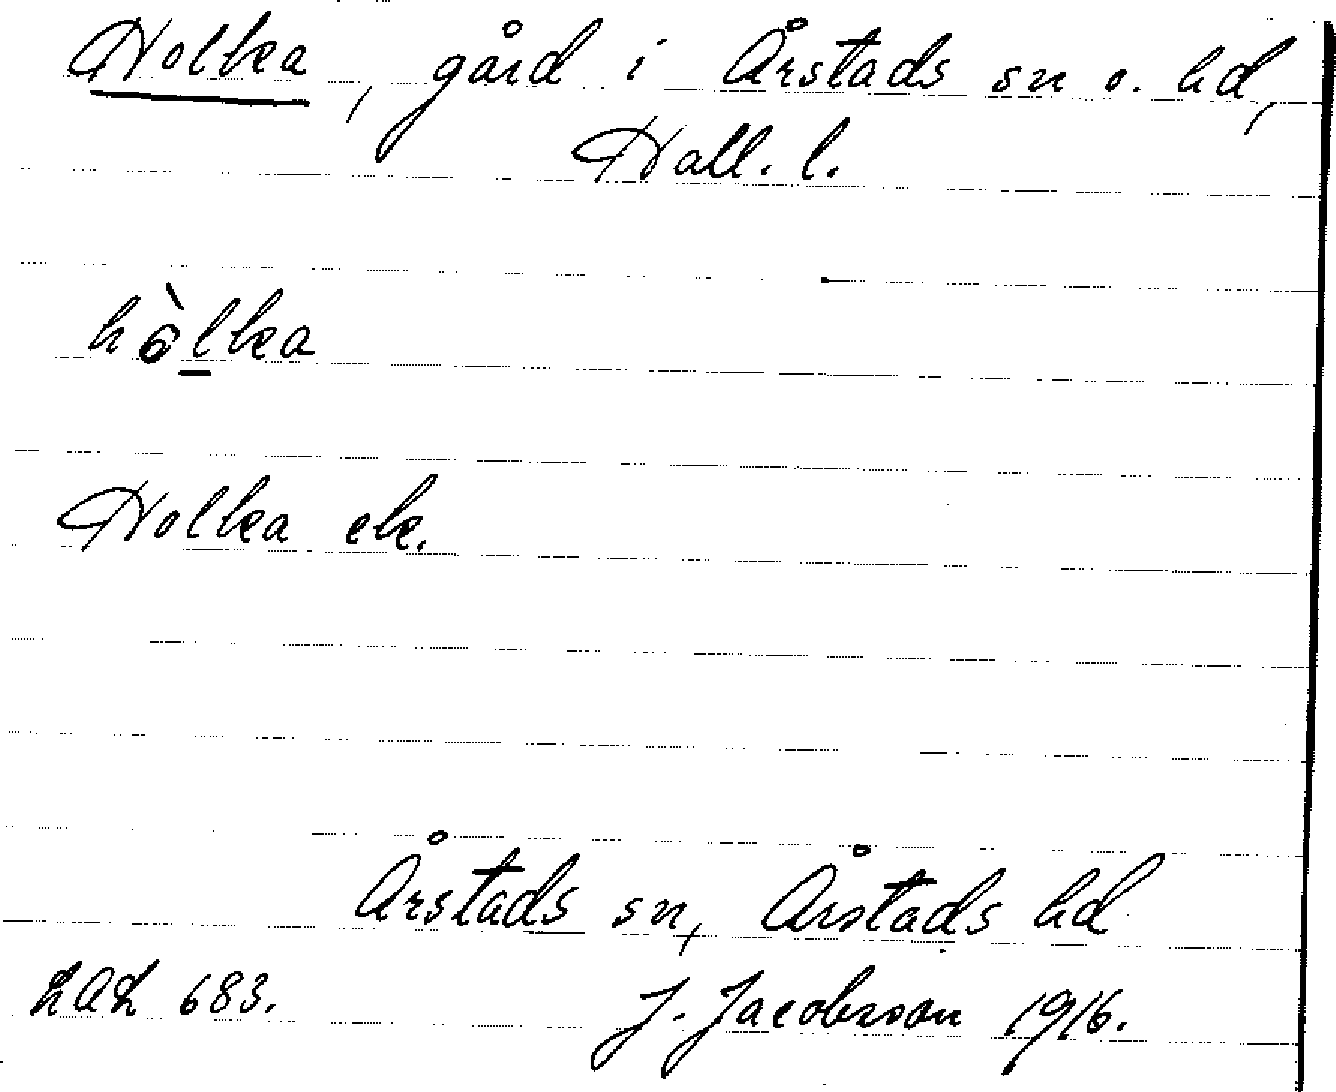 Holka, gård i Årstads sn o. hd,
Hall. l.
hòlka
Holka ek.
Årstads sn, Årstads hd
683.
J. Jacobsson 1916.